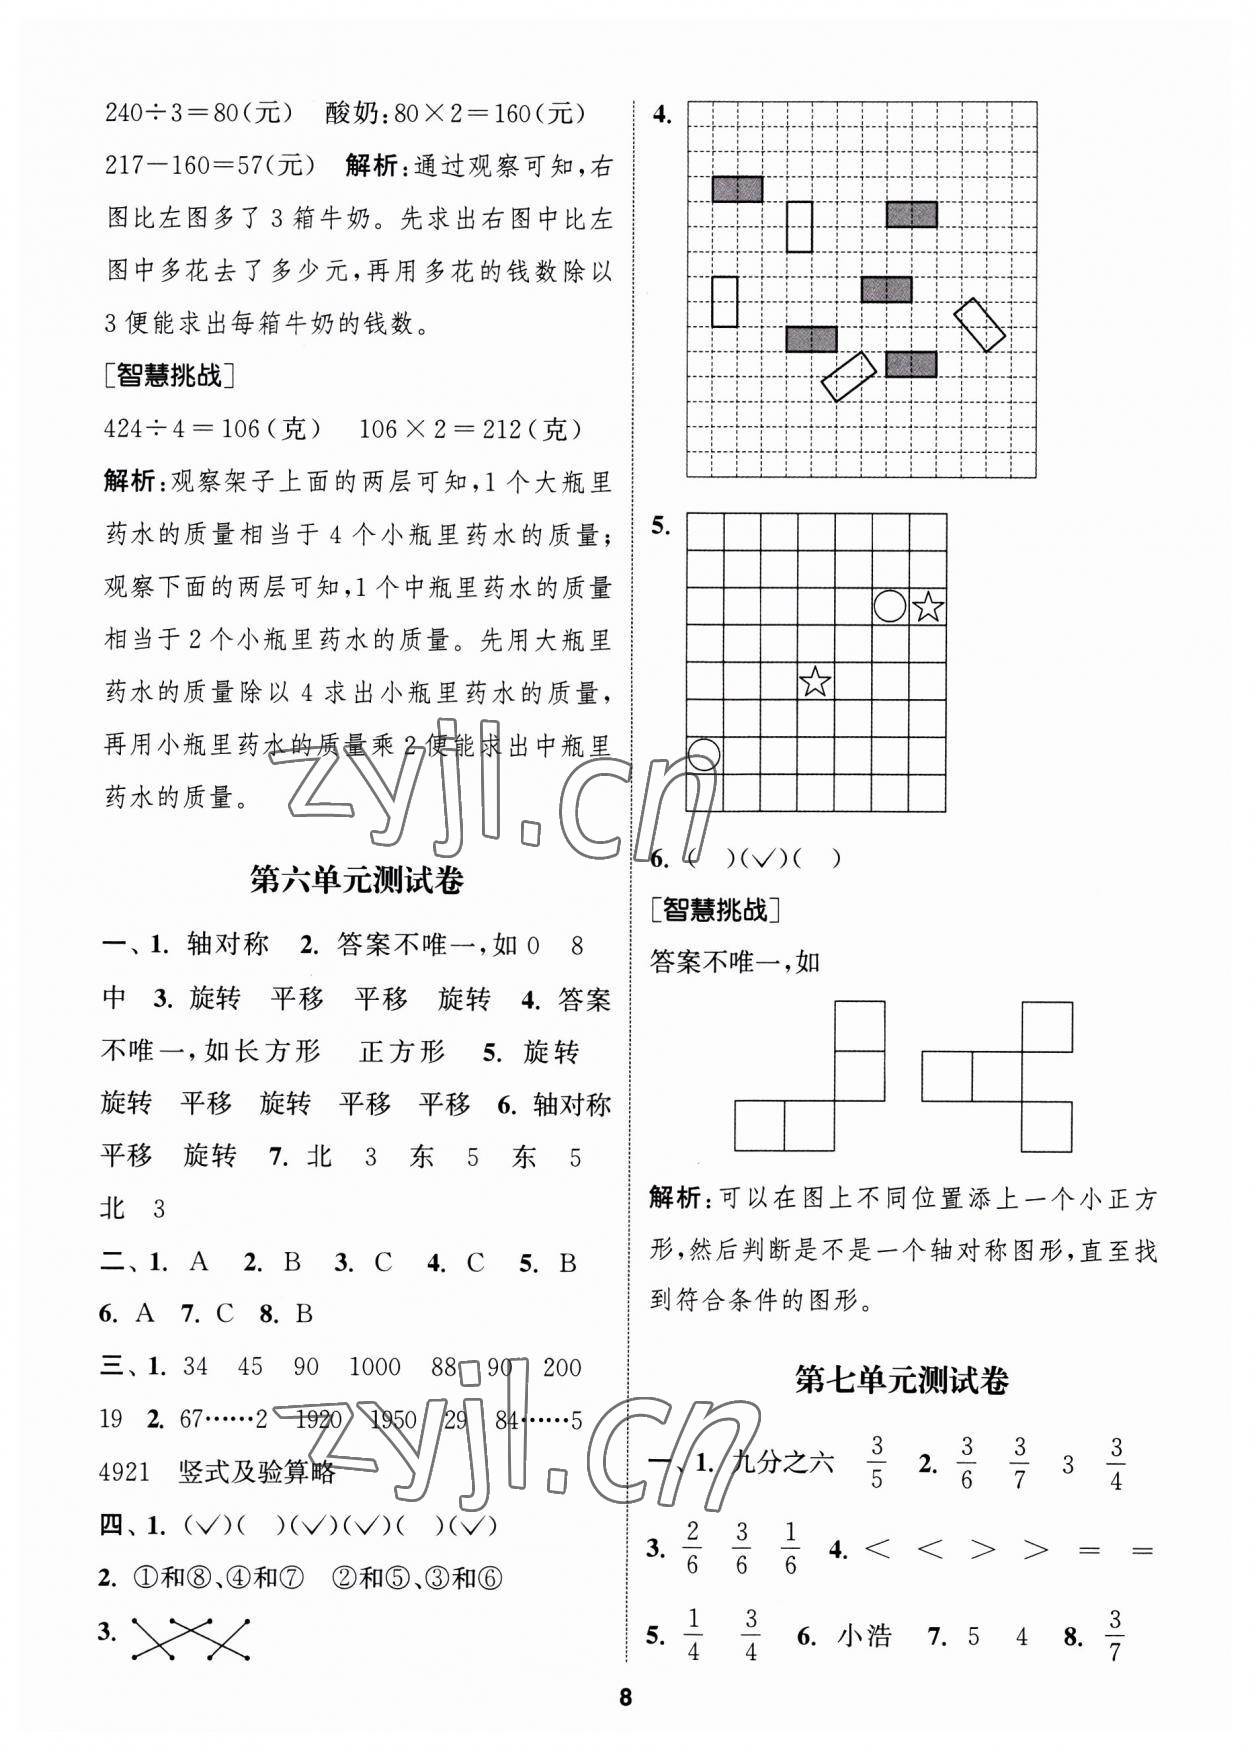 240÷3=80(元)  酸奶:80×2=160(元)
217-160=57(元)  解析:通过观察可知,右
图比左图多了3箱牛奶。先求出右图中比左
图中多花去了多少元,再用多花的钱数除以
3便能求出每箱牛奶的钱数。
[智慧挑战]
424÷4=106(克)  106×2=212(克)
解析:观察架子上面的两层可知,1个大瓶里
药水的质量相当于4个小瓶里药水的质量;
观察下面的两层可知,1个中瓶里药水的质量
相当于2个小瓶里药水的质量。先用大瓶里
药水的质量除以4求出小瓶里药水的质量,
再用小瓶里药水的质量乘2便能求出中瓶里
药水的质量。
第六单元测试卷
一、1. 轴对称  2. 答案不唯一,如0  8
中  3. 旋转  平移  平移  旋转  4. 答案
不唯一,如长方形  正方形  5. 旋转
旋转  平移  旋转  平移  平移  6. 轴对称
平移  旋转  7. 北  3  东  5  东  5
北  3
二、1. A  2. B  3. C  4. C  5. B
6. A  7. C  8. B
三、1. 34  45  90  1000  88  90  200
19  2. 67……2  1920  1950  29  84……5
4921  竖式及验算略
四、1. (✓)(  )(✓)(✓)(  )(✓)
2. ①和⑧、④和⑦  ②和⑤、③和⑥
3.
4.
5.
6. (  )(✓)(  )
[智慧挑战]
答案不唯一,如
解析:可以在图上不同位置添上一个小正方
形,然后判断是不是一个轴对称图形,直至找
到符合条件的图形。
第七单元测试卷
一、1. 九分之六  3/5  2. 3/6  3/7  3  3/4
3. 2/6  3/6  1/6  4. <  <  >  >  =  =
5. 1/4  3/4  6. 小浩  7. 5  4  8. 3/7
8
zyjl.cn
zyjl.cn